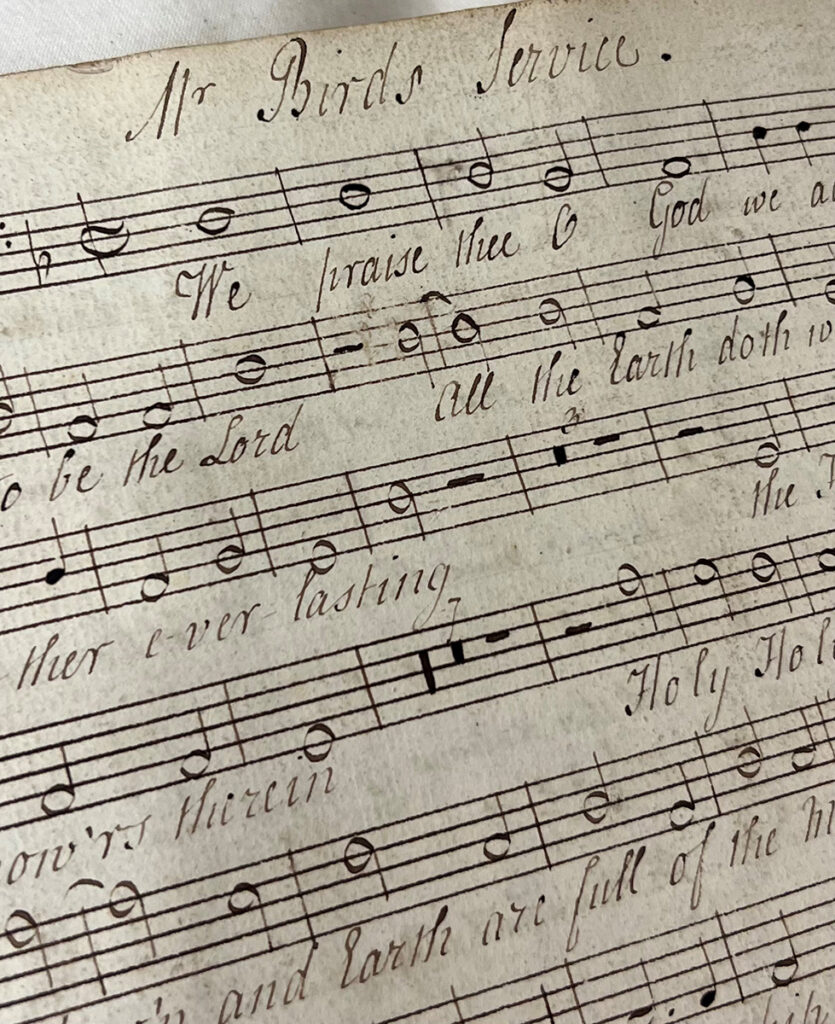 Mr Birds Service.
We praise thee O God we
to be the Lord All the Earth doth
3
ther e-ver-lasting the
7
therein Holy Holy
and Earth are full of the